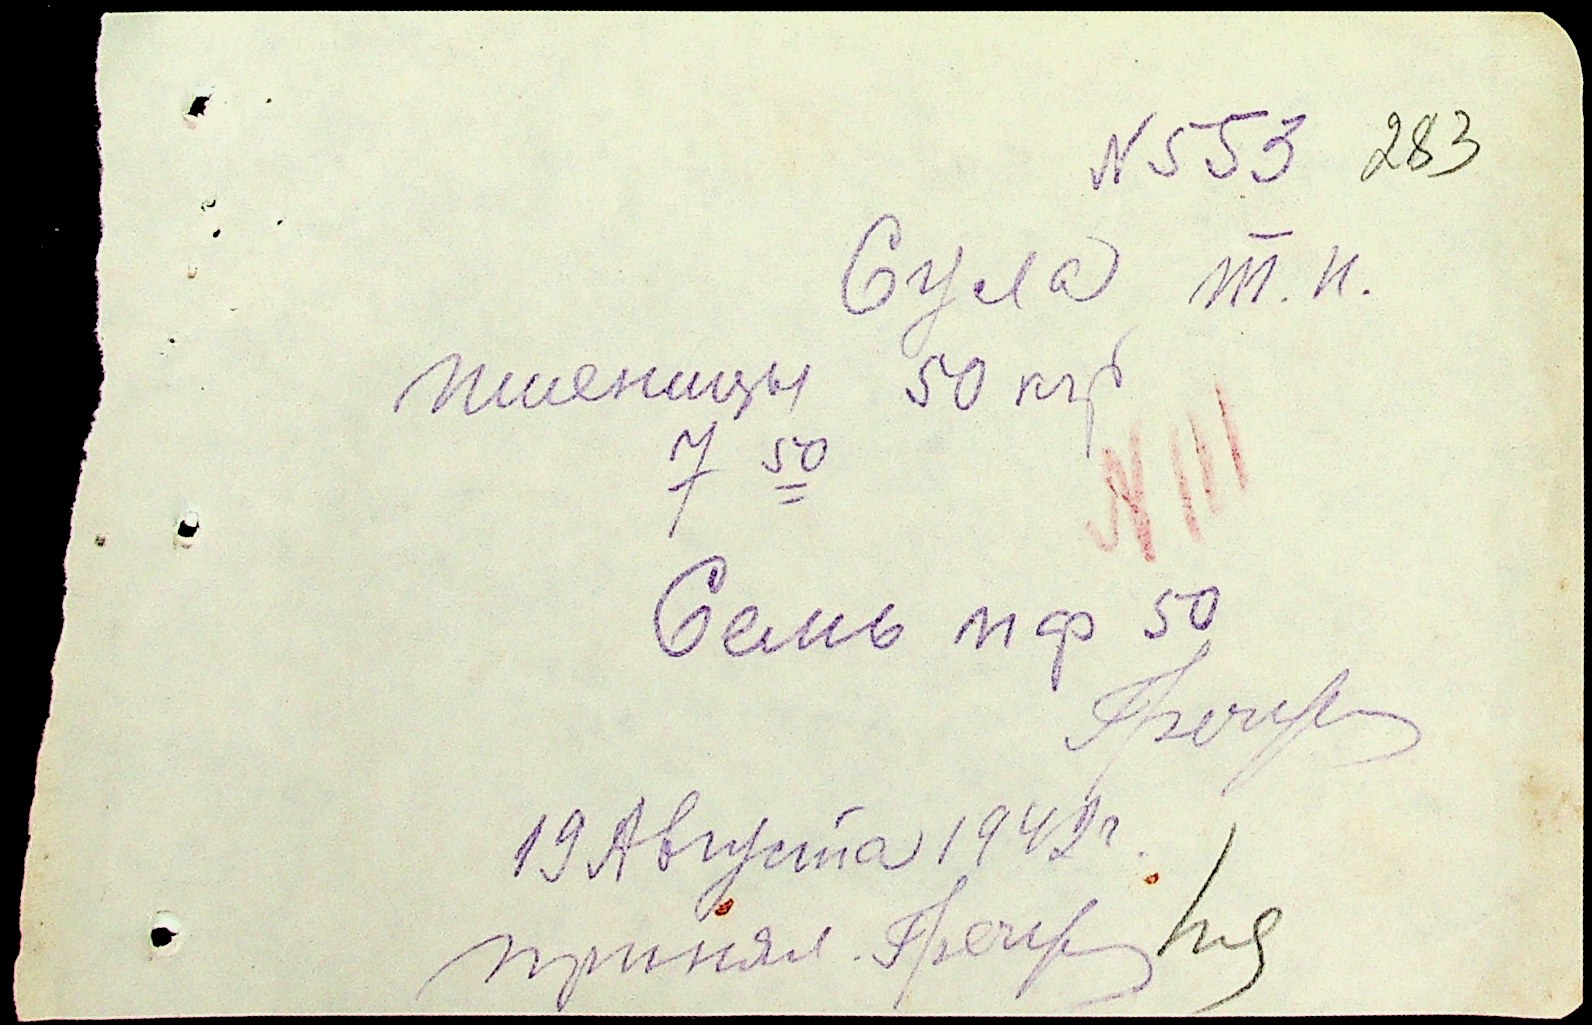 N 553 283
Сула т. п.
пшеницы 50 кгр
7 50
N III
Семь пф 50
19 Августа 1942 г.
принял.